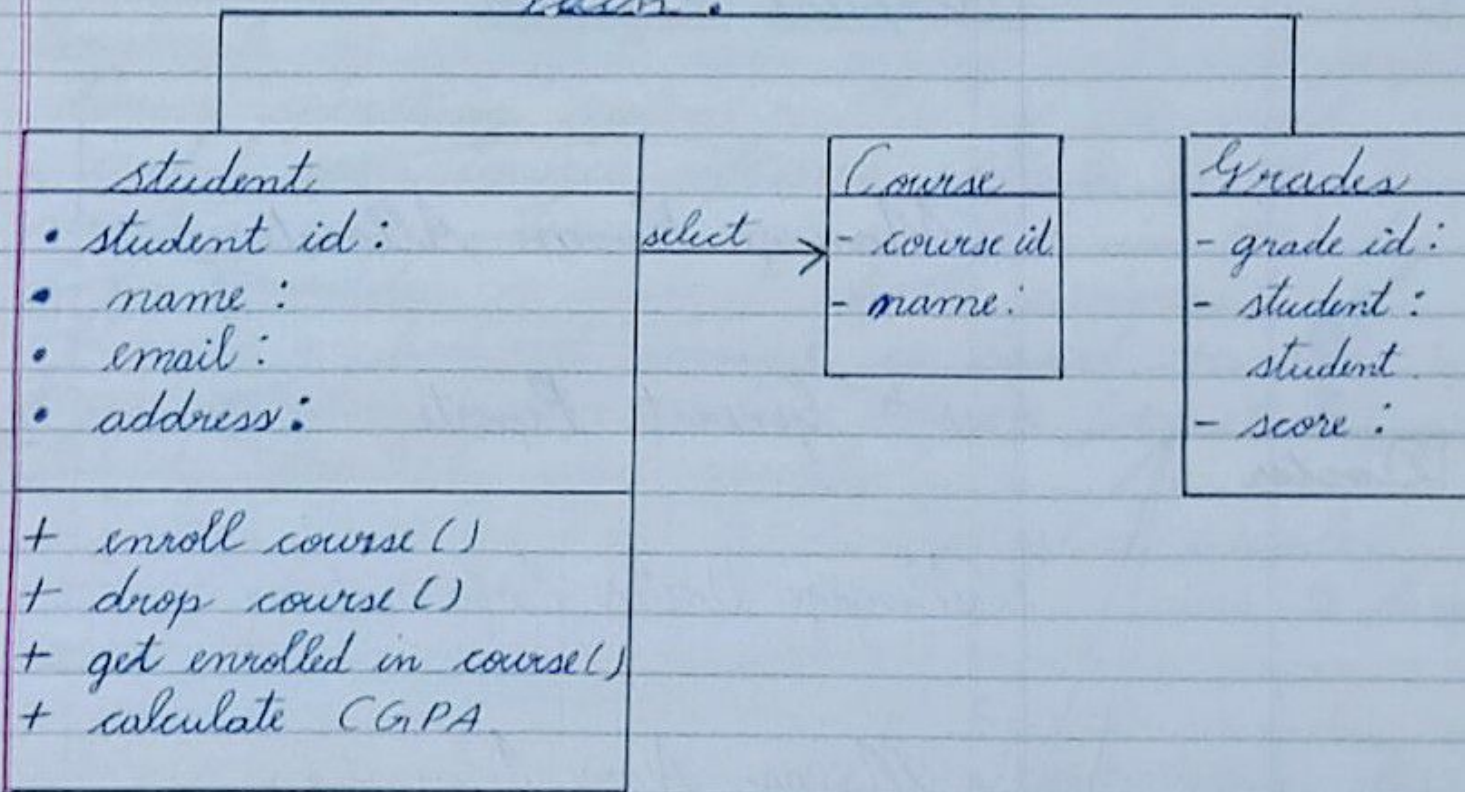 student
• student id :
• name :
• email :
• address :
+ enroll course ()
+ drop course ()
+ get enrolled in course()
+ calculate CGPA
select
Course
- course id
- name :
Grades
- grade id :
- student :
student
- score :